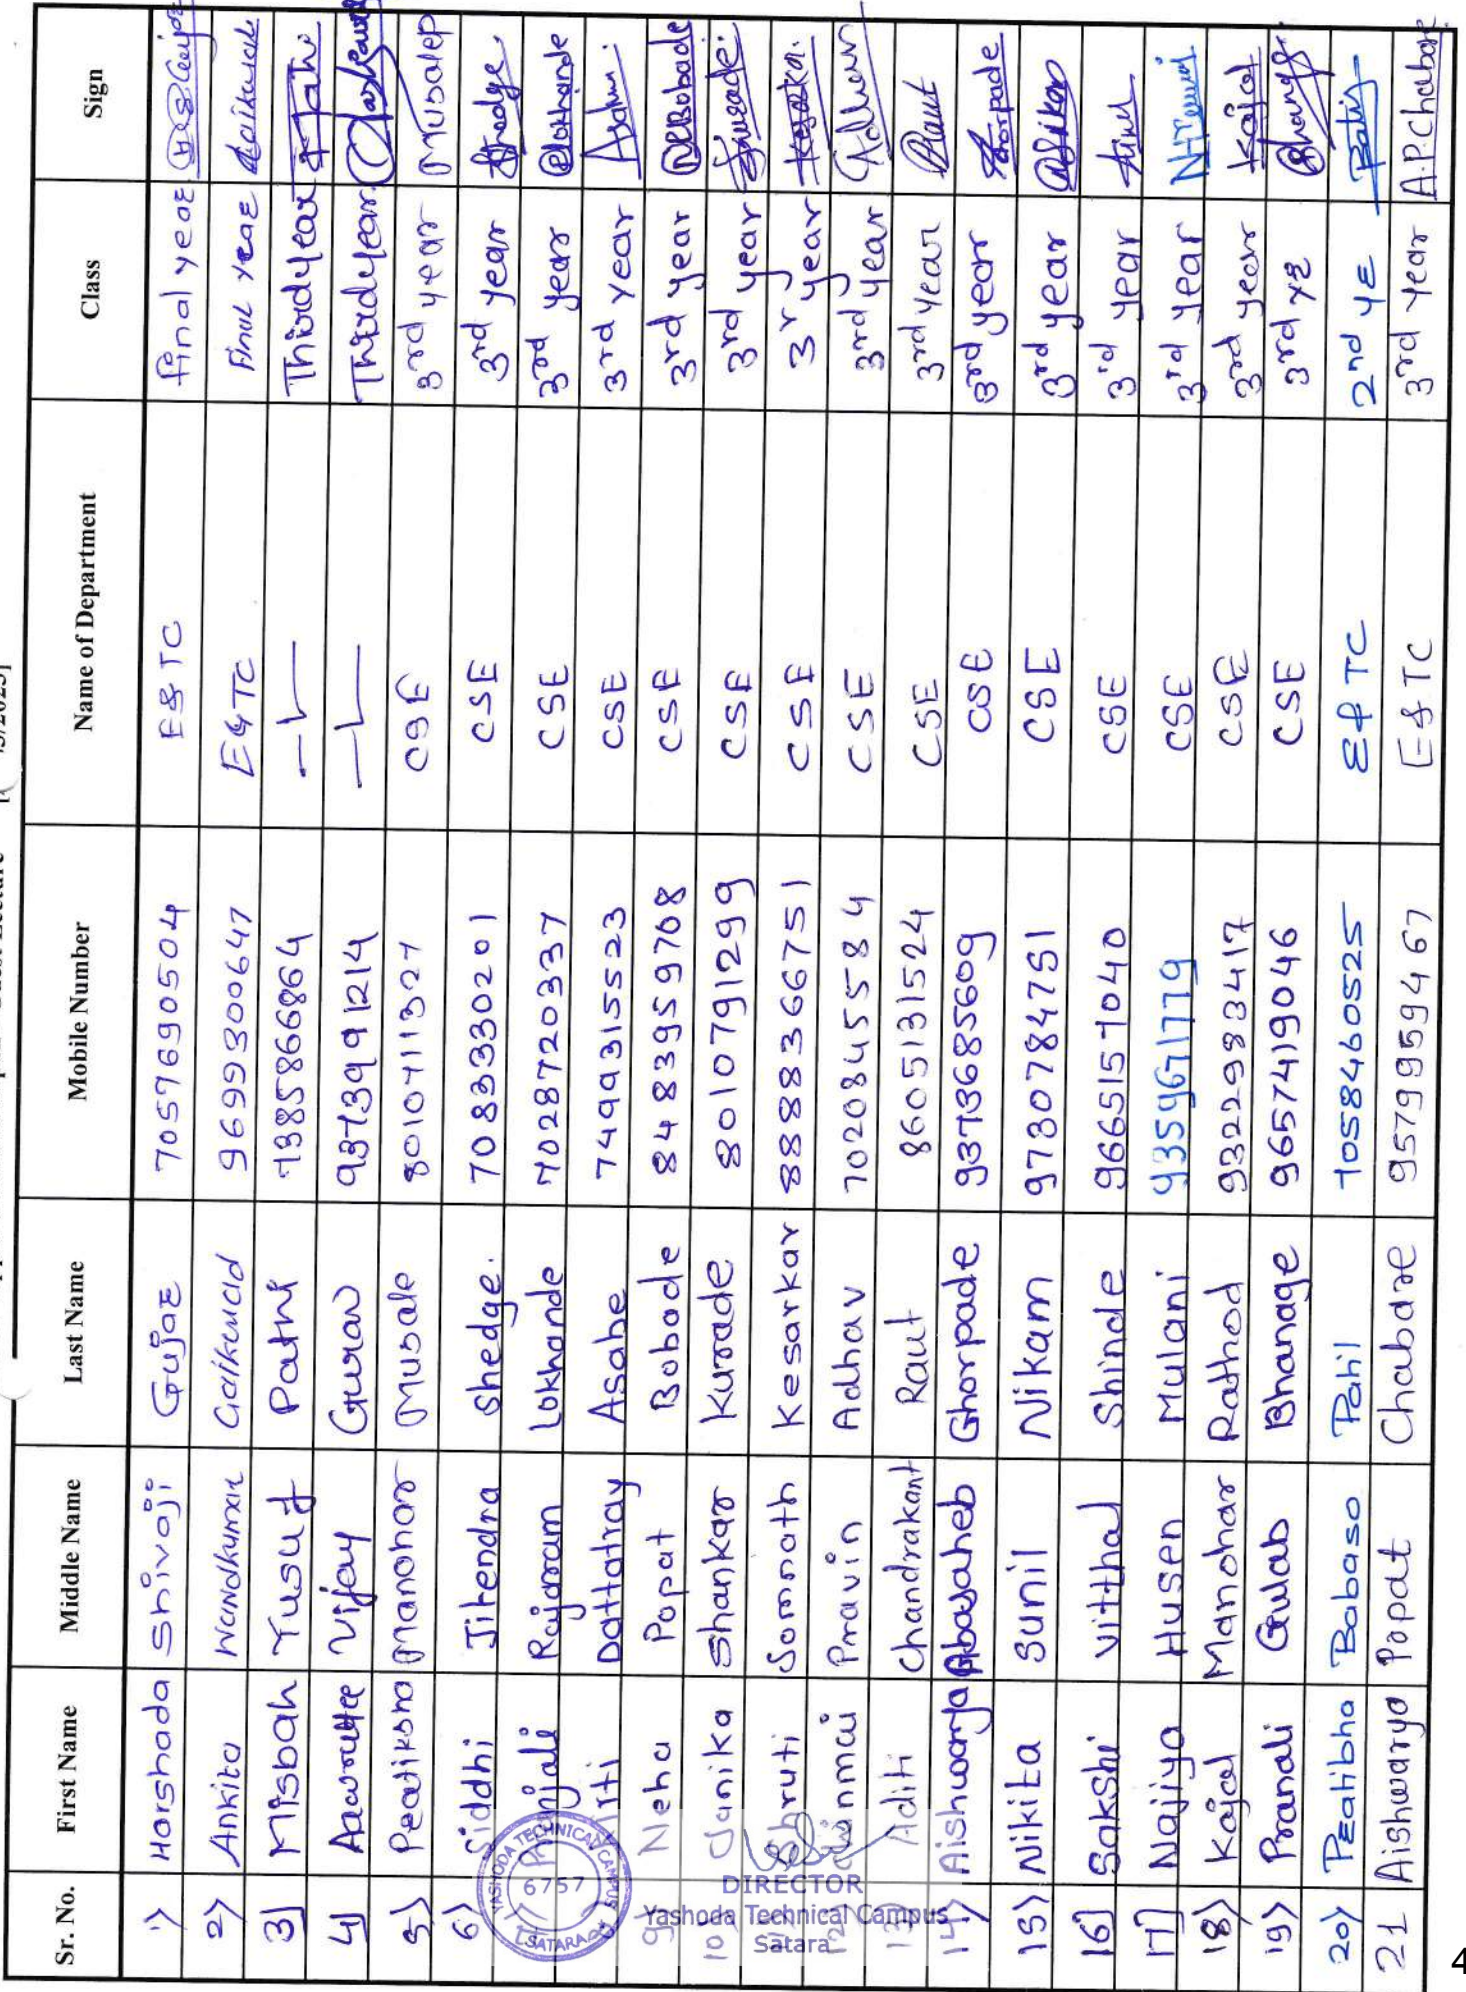 Guest Lecture
/3/2023]
Sr. No. First Name Middle Name Last Name Mobile Number Name of Department Class Sign
1) Harshada Shivaji Gujar 7057690504 E&TC Final year
2) Ankita Nandkumar Gaikwad 9699300647 E&TC Final year Gaikwad
3] Misbah Yusuf Pathi 7385866864 —〃— Third year
4] Aawruttee Vijay Gurav 9373991214 —〃— Third year
5) Pratiksha Manohar Musale 8010711327 CSE 3rd year Musalep
6) Siddhi Jitendra Shedge. 7083330201 CSE 3rd year Shedge.
njali Rajaram Lokhande 7028720337 CSE 3rd year Lokhande
iti Dattatray Asabe 7499315523 CSE 3rd year
9) Neha Popat Bobade 8483959708 CSE 3rd year NPBobade
10) Janika Shankar Kurade 8010791299 CSE 3rd year Kurade.
Shruti Somnath Kesarkar 8888366751 CSE 3r year
12) Pravin Adhav 7020845584 CSE 3rd year
13) Aditi Chandrakant Raut 8605131524 CSE 3rd year Raut
14) Aishwarya Abasaheb Ghorpade 9373685609 CSE 3rd year Ghorpade
15) Nikita Sunil Nikam 9730784751 CSE 3rd year
16] Sakshi Vitthal Shinde 9665157040 CSE 3rd year
17] Najiya Husen Mulani 9359671779 CSE 3rd year
18) Kajal Manohar Rathod 9322983417 CSE 3rd year Kajal
19) Pranali Gulab Bhanage 9657419046 CSE 3rd yr
20) Pratibha Babaso Patil 7058460525 E&TC 2nd yr Patil
21 Aishwarya Popat Chabare 9579959467 E&TC 3rd year A.P.Chabare
YASHODA TECHNICAL CAMPUS
6757
SATARA
DIRECTOR
Yashoda Technical Campus
Satara
4